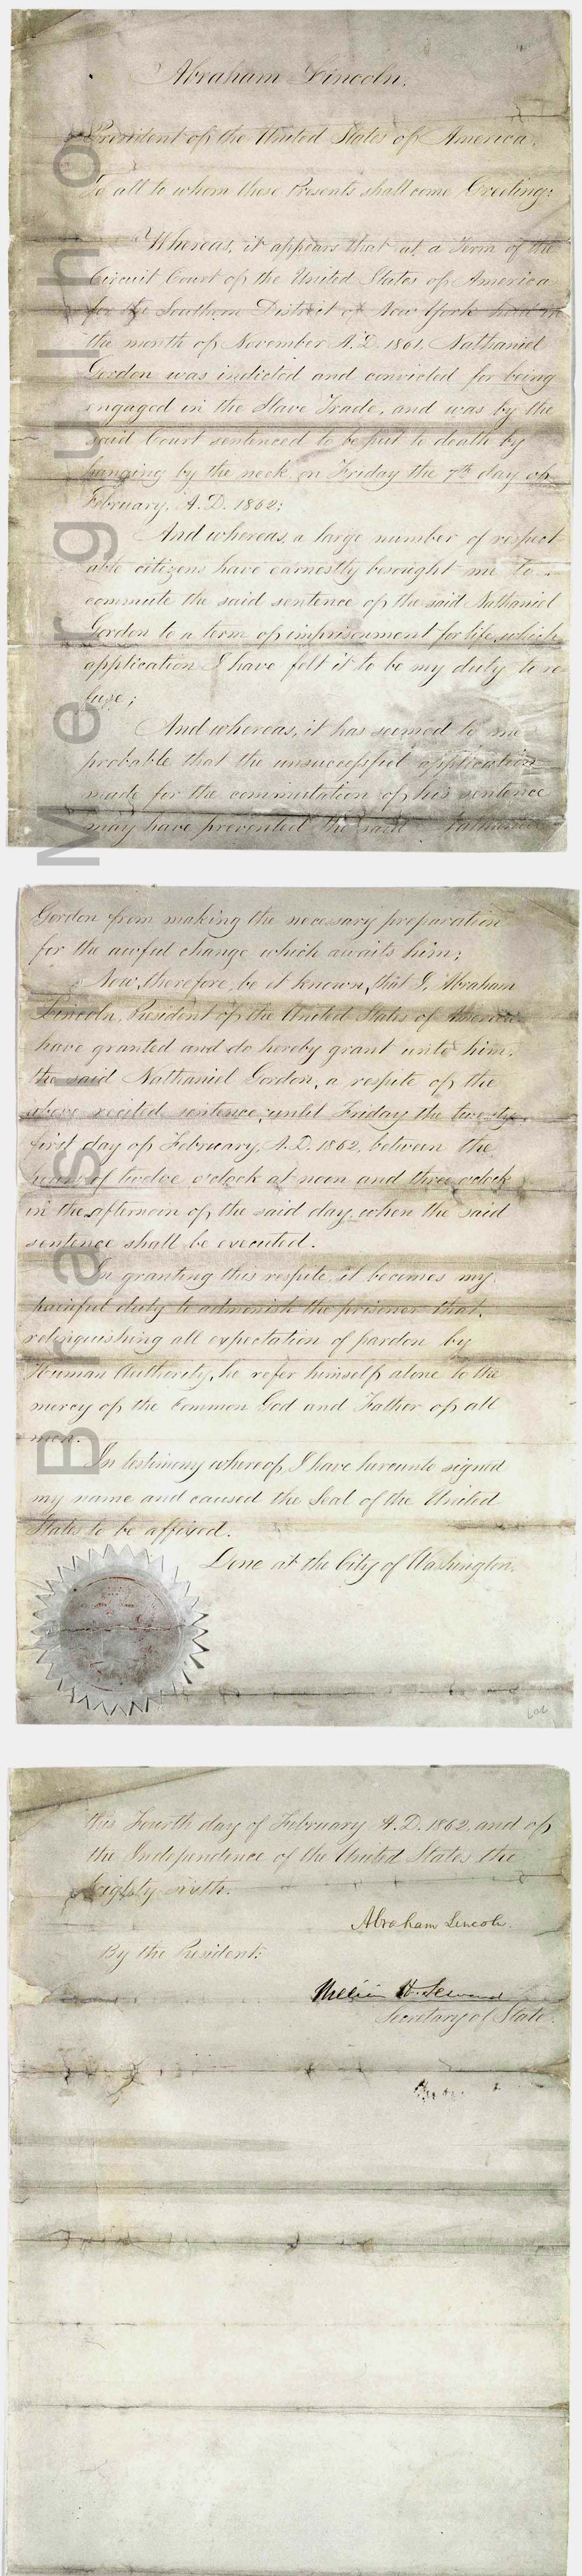 Abraham Lincoln.
President of the United States of America,
To all to whom these Presents shall come Greeting:
Whereas, it appears that at a Term of the
Circuit Court of the United States of America
for the Southern District of New York held in
the month of November A.D. 1861, Nathaniel
Gordon was indicted and convicted for being
engaged in the Slave Trade, and was by the
said Court sentenced to be put to death by
hanging by the neck on Friday the 7th day of
February, A.D. 1862;
And whereas, a large number of respect-
able citizens have earnestly besought me to
commute the said sentence of the said Nathaniel
Gordon to a term of imprisonment for life, which
application I have felt it to be my duty to re-
fuse;
And whereas, it has seemed to me
probable that the unsuccessful application
made for the commutation of his sentence
may have prevented the said Nathaniel
Gordon from making the necessary preparation
for the awful change which awaits him;
Now, therefore, be it known, that I, Abraham
Lincoln, President of the United States of America
have granted and do hereby grant unto him,
the said Nathaniel Gordon, a respite of the
above recited sentence, until Friday the twenty
first day of February, A.D. 1862, between the
hours of twelve o'clock at noon and three o'clock
in the afternoon of the said day, when the said
sentence shall be executed.
In granting this respite, it becomes my
painful duty to admonish the prisoner that,
relinquishing all expectation of pardon by
Human Authority, he refer himself alone to the
mercy of the Common God and Father of all
men.
In testimony whereof, I have hereunto signed
my name and caused the Seal of the United
States to be affixed.
Done at the City of Washington,
this Fourth day of February A.D. 1862, and of
the Independence of the United States the
Eighty sixth.
Abraham Lincoln.
By the President:
William H. Seward
Secretary of State.
Bras Mergulho